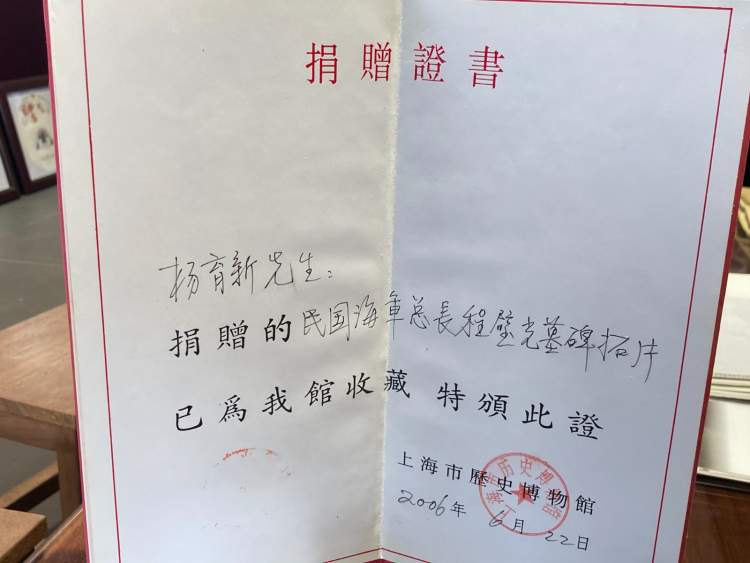 捐贈證書
杨育新先生：
捐贈的民国海軍总長程壁光墓碑拓片
已為我館收藏 特頒此證
上海市歷史博物館
2006年6月22日
上海市历史博物馆